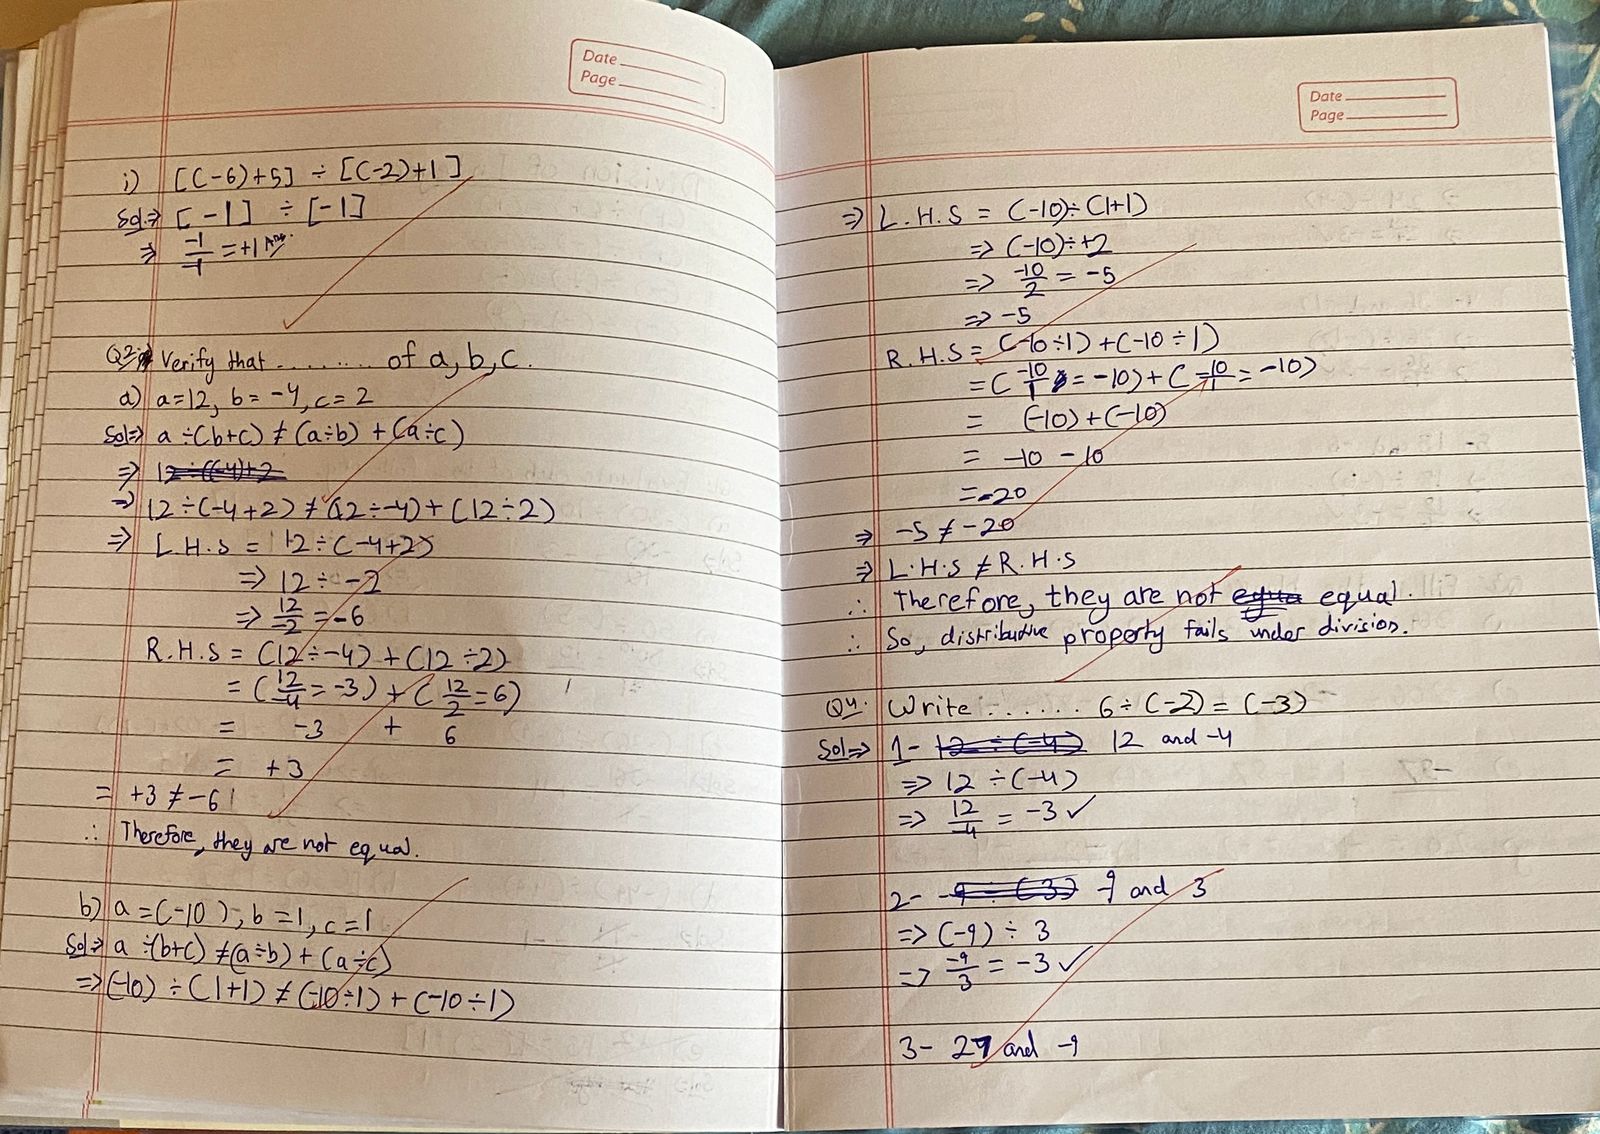 Date
Page
i) [(-6)+5] ÷ [(-2)+1]
Sol⇒ [-1] ÷ [-1]
⇒ -1/-1 = +1 Ans.
Q2. Verify that ......... of a, b, c.
a) a=12, b= -4, c= 2
Sol⇒ a ÷(b+c) ≠ (a÷b) + (a÷c)
⇒ 12 ÷ ((-4)+2
⇒ 12 ÷(-4+2) ≠ (12 ÷-4) + (12÷2)
⇒ L.H.S = 12÷(-4+2)
⇒ 12 ÷ -2
⇒ 12/-2 = -6
R.H.S = (12÷-4) + (12÷2)
= (12/-4 = -3) + (12/2 = 6)
= -3 + 6
= +3
= +3 ≠ -6
∴ Therefore, they are not equal.
b) a =(-10), b =1, c=1
Sol⇒ a ÷(b+c) ≠(a÷b) + (a÷c)
⇒ (-10) ÷ (1+1) ≠ (-10÷1) + (-10÷1)
Date
Page
⇒ L.H.S = (-10)÷(1+1)
⇒ (-10)÷+2
⇒ -10/2 = -5
⇒ -5
R.H.S = (-10÷1) +(-10 ÷1)
= (-10/1 = -10) + (-10/1 = -10)
= (-10) + (-10)
= -10 - 10
= -20
⇒ -5 ≠ -20
⇒ L.H.S ≠ R.H.S
∴ Therefore, they are not equa equal.
∴ So, distributive property fails under division.
Q4. Write ...... 6 ÷ (-2) = (-3)
Sol⇒ 1- 12 ÷ (-4) 12 and -4
⇒ 12 ÷(-4)
⇒ 12/-4 = -3 ✓
2- -9 ÷ (3) -9 and 3
⇒ (-9) ÷ 3
⇒ -9/3 = -3 ✓
3- 27 and -9